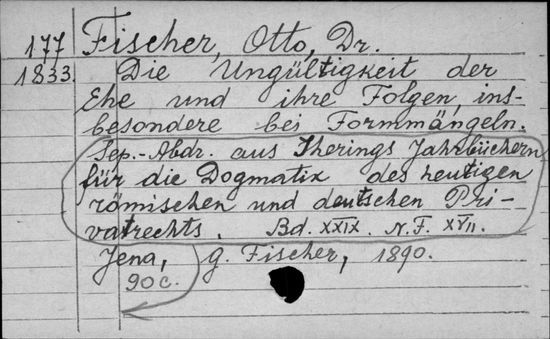 177 Fischer, Otto, Dr.
1833. Die Ungültigkeit der
Ehe und ihre Folgen, ins-
besondere bei Formmängeln.
Sep.-Abdr. aus Iherings Jahrbüchern
für die Dogmatik des heutigen
römischen und deutschen Pri-
vatrechts. Bd. XXIX. N.F. XVII.
Jena, G. Fischer, 1890.
90 c.